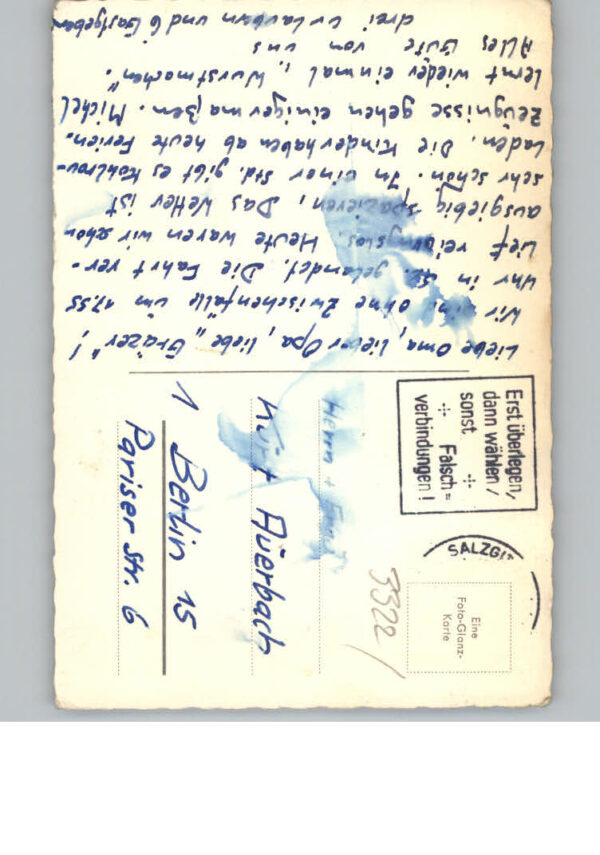 Liebe Oma, lieber Opa, liebe „Gräzer"!
Wir sind ohne Zwischenfälle um 17.55
Uhr in gelandet. Die Fahrt ver-
lief reibungslos. Heute waren wir schon
ausgiebig spazieren, Das Wetter ist
sehr schön. In einer Std. gibt es Kohlrou-
laden. Die Kinder haben ab heute Ferien.
Zeugnisse gehen einigermaßen. Michel
lernt wieder einmal „Wurstmachen".
Alles Gute von uns
drei Urlaubern und 6 Gastgebern
Erst überlegen,
dann wählen /
sonst ÷
÷ Falsch=
verbindungen!
SALZGI
Eine
Foto-Glanz-
Karte
3322/
Herrn + Frau
Kurt Auerbach
1 Berlin 15
Pariser Str. 6